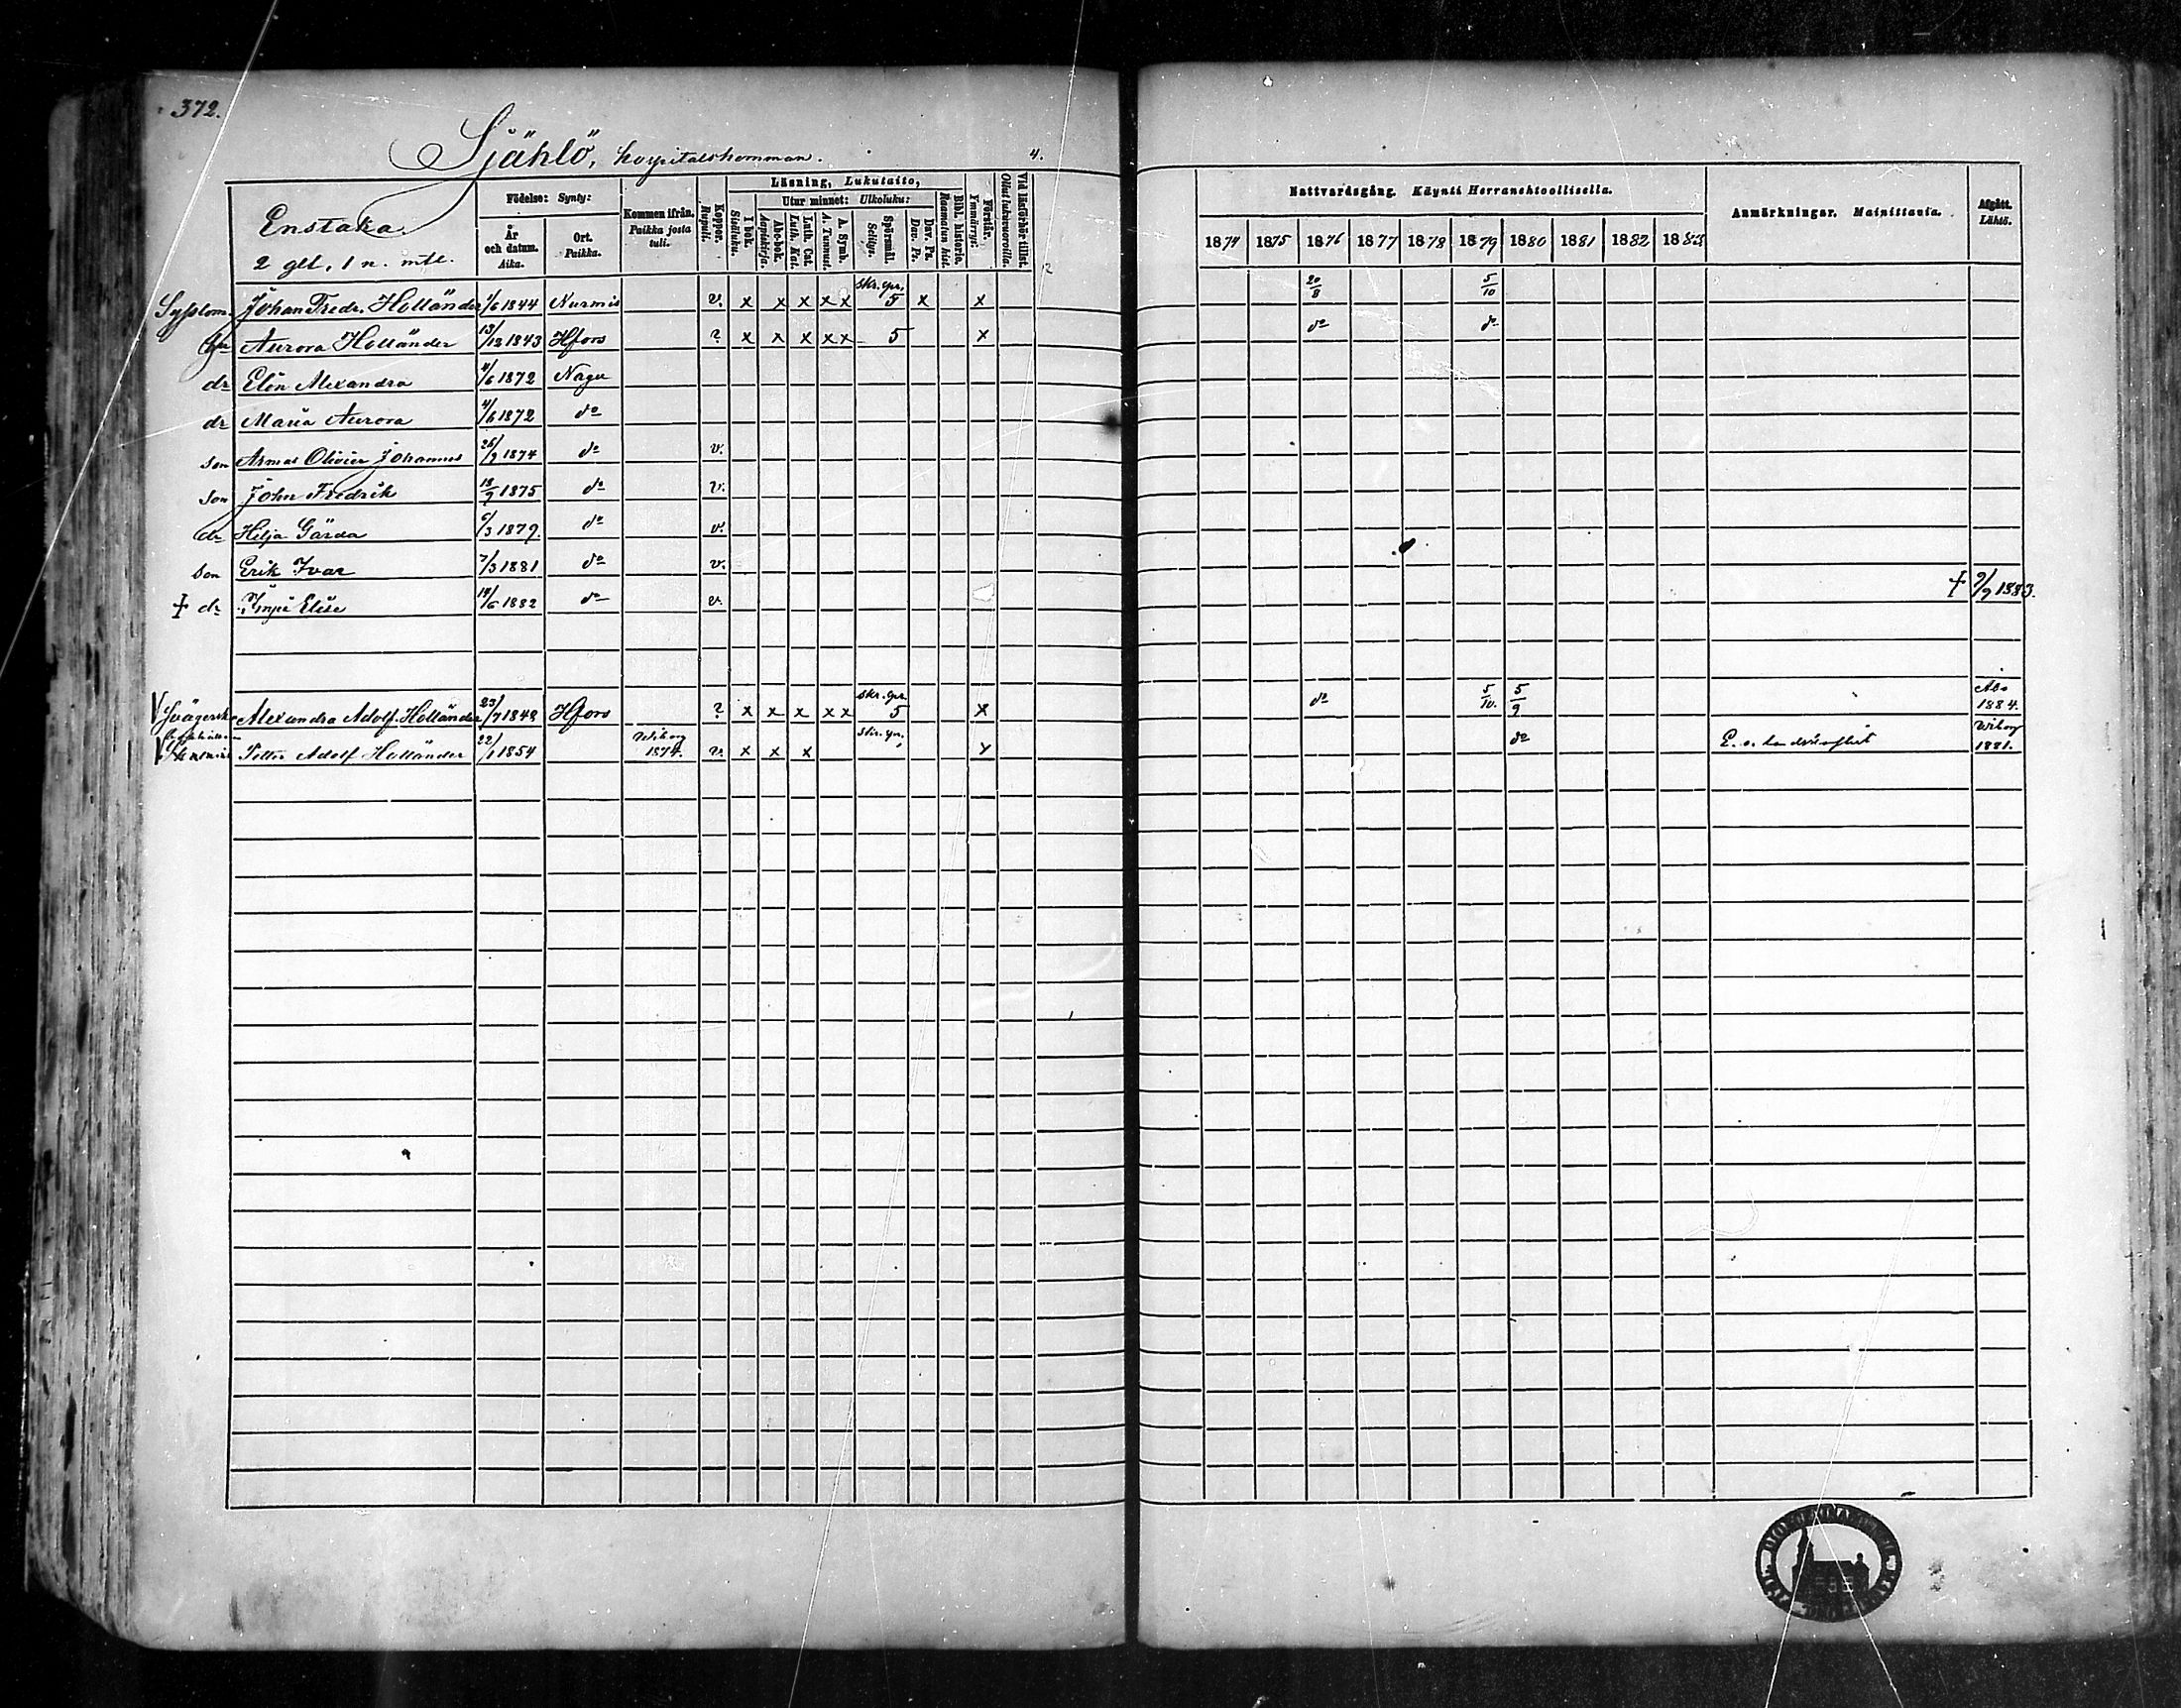 372.
Sjählö, hospitalshemman. 4.
Enstaka.
2 gll, 1 n. mtl.
Födelse: Synty:
År och datum. Aika.
Ort. Paikka.
Kommen ifrån. Paikka josta tuli.
Koppor. Rupuli.
Läsning, Lukutaito,
I bok. Sisäluku.
Utur minnet: Ulkoluku:
Abc-bok. Aapiskirja.
Luth. Cat. Luth. Kat.
A. Symb. A. Tunnust.
Spörsmål. Selitys.
Dav. Ps. Dav. Ps.
Bibl. historia. Raamatun hist.
Förstår. Ymmärrys:
Vid läsförhör tillst. Ollut lukuvuoroilla.
Nattvardsgång. Käynti Herranehtoollisella.
1874 1875 1876 1877 1878 1879 1880 1881 1882 1883
Anmärkningar. Mainittavia.
Afgått. Lähtö.
Sysslom. Johan Fredr. Holländer 1/6 1844 Nurmis v. x x x x x skr. gr. 5 x x 20/8 5/10
Aurora Holländer 13/12 1843 Hfors ? x x x x x 5 x do do
dr Elin Alexandra 4/6 1872 Nagu
dr Maria Aurora 4/6 1872 do
son Armas Olivier Johannes 26/9 1874 do v.
son John Fredrik 18/9 1875 do v.
dr Hilja Gärda 6/3 1879. do v.
son Erik Ivar 7/3 1881 do v.
† dr Elise 14/6 1882 do v. † 9/9 1883.
Alexandra Adolf. Holländer 23/7 1842 Hfors ? x x x x x skr. gr. 5 x do 5/10. 5/9 Åbo 1884.
Petter Adolf Holländer 22/1 1854 Wiborg 1874. v. x x x do E. o. Wiborg 1881.